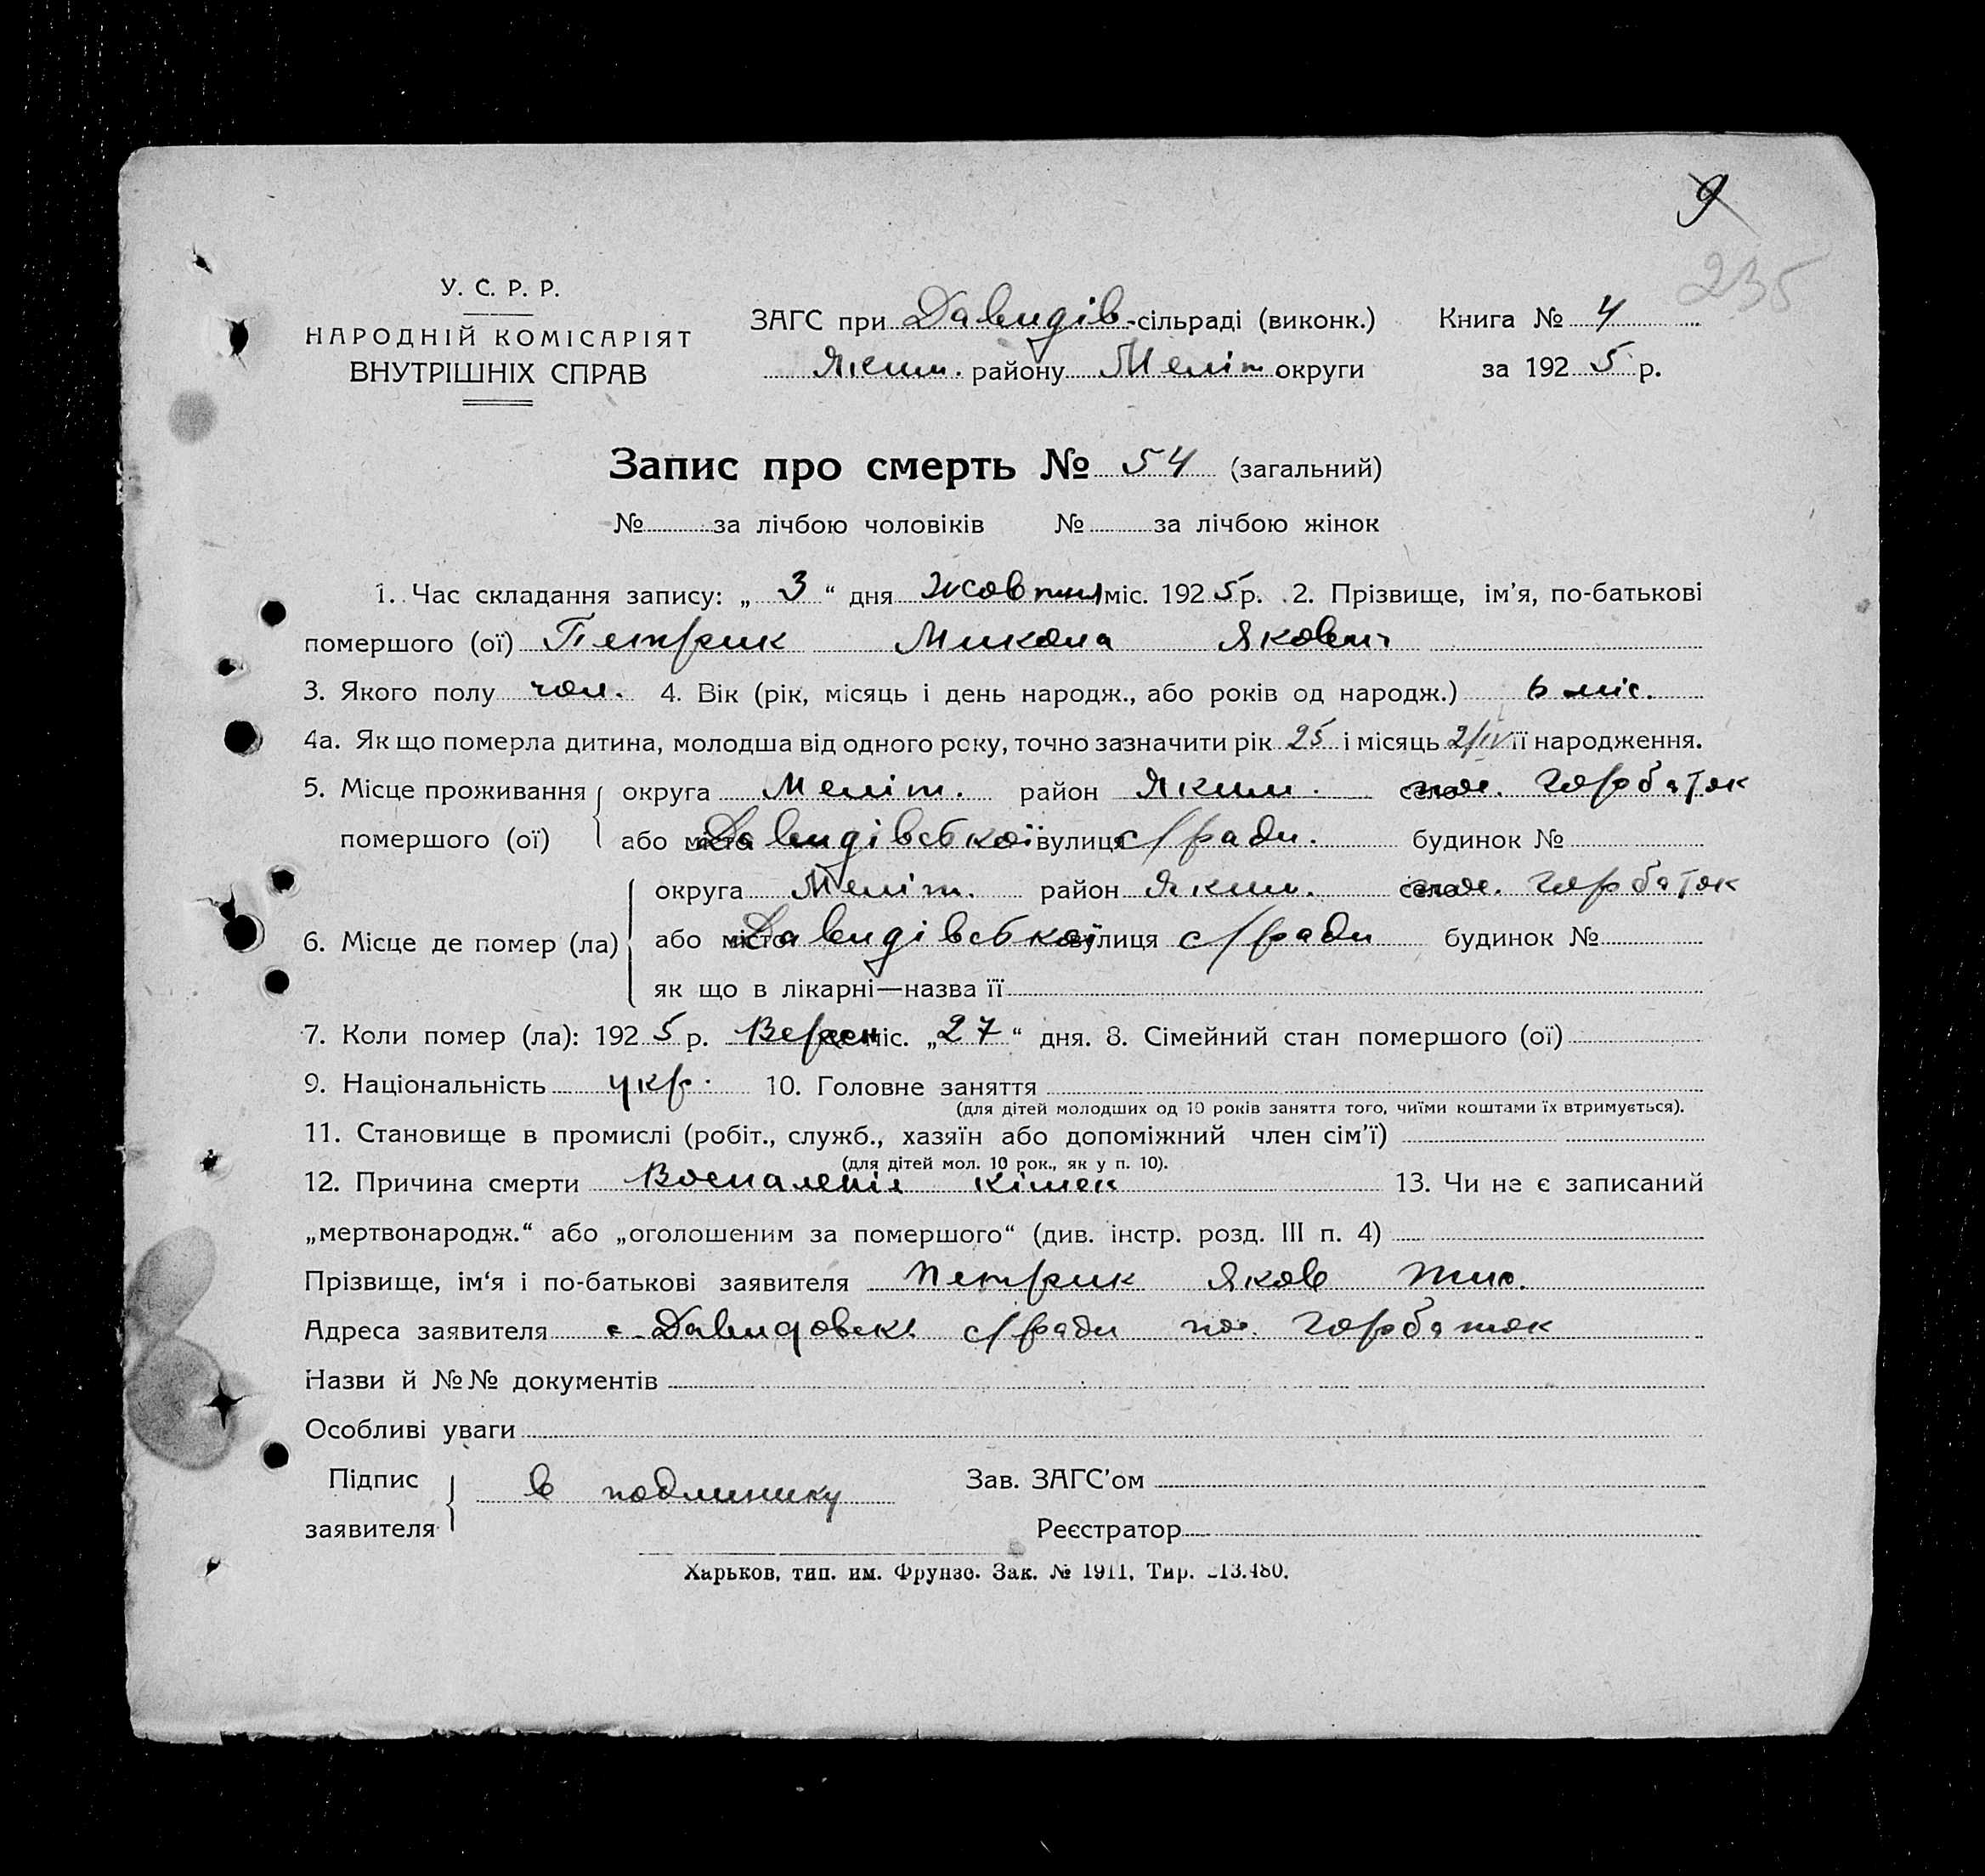 9
235
У. С. Р. Р.
НАРОДНІЙ КОМІСАРІЯТ
ВНУТРІШНІХ СПРАВ
ЗАГС при Давидів-сільраді (виконк.)
Яким. району Меліт округи
Книга № 4
за 1925 р.
Запис про смерть № 54 (загальний)
№ за лічбою чоловіків № за лічбою жінок
1. Час складання запису: „ 3 “ дня Жовтня міс. 1925 р. 2. Прізвище, ім'я, по-батькові
помершого (ої) Петрик Микола Якович
3. Якого полу чол. 4. Вік (рік, місяць і день народж., або років од народж.) 6 міс.
4а. Як що померла дитина, молодша від одного року, точно зазначити рік 25 і місяць 2/IV її народження.
5. Місце проживання помершого (ої) округа Меліт. район Яким. село пос. Горбаток
або місто Давидівської вулиця с/ради. будинок №
6. Місце де помер (ла) округа Меліт. район Яким. село пос. Горбаток
або місто Давидівської вулиця с/ради будинок №
як що в лікарні—назва її
7. Коли помер (ла): 1925 р. Вересн міс. „27“ дня. 8. Сімейний стан помершого (ої)
9. Національність укр. 10. Головне заняття
(для дітей молодших од 10 років заняття того, чиїми коштами їх втримується).
11. Становище в промислі (робіт., служб., хазяїн або допоміжний член сім'ї)
(для дітей мол. 10 рок., як у п. 10).
12. Причина смерти Воспаленія кішек 13. Чи не є записаний
„мертвонародж.“ або „оголошеним за помершого“ (див. інстр. розд. III п. 4)
Прізвище, ім‘я і по-батькові заявителя Петрик Яков
Адреса заявителя с. Давидовск. с/ради пос. Горбаток
Назви й №№ документів
Особливі уваги
Підпис заявителя в подлинику
Зав. ЗАГС'ом
Реєстратор
Харьков, тип. им. Фрунзе. Зак. № 1911, Тир. 13.480.